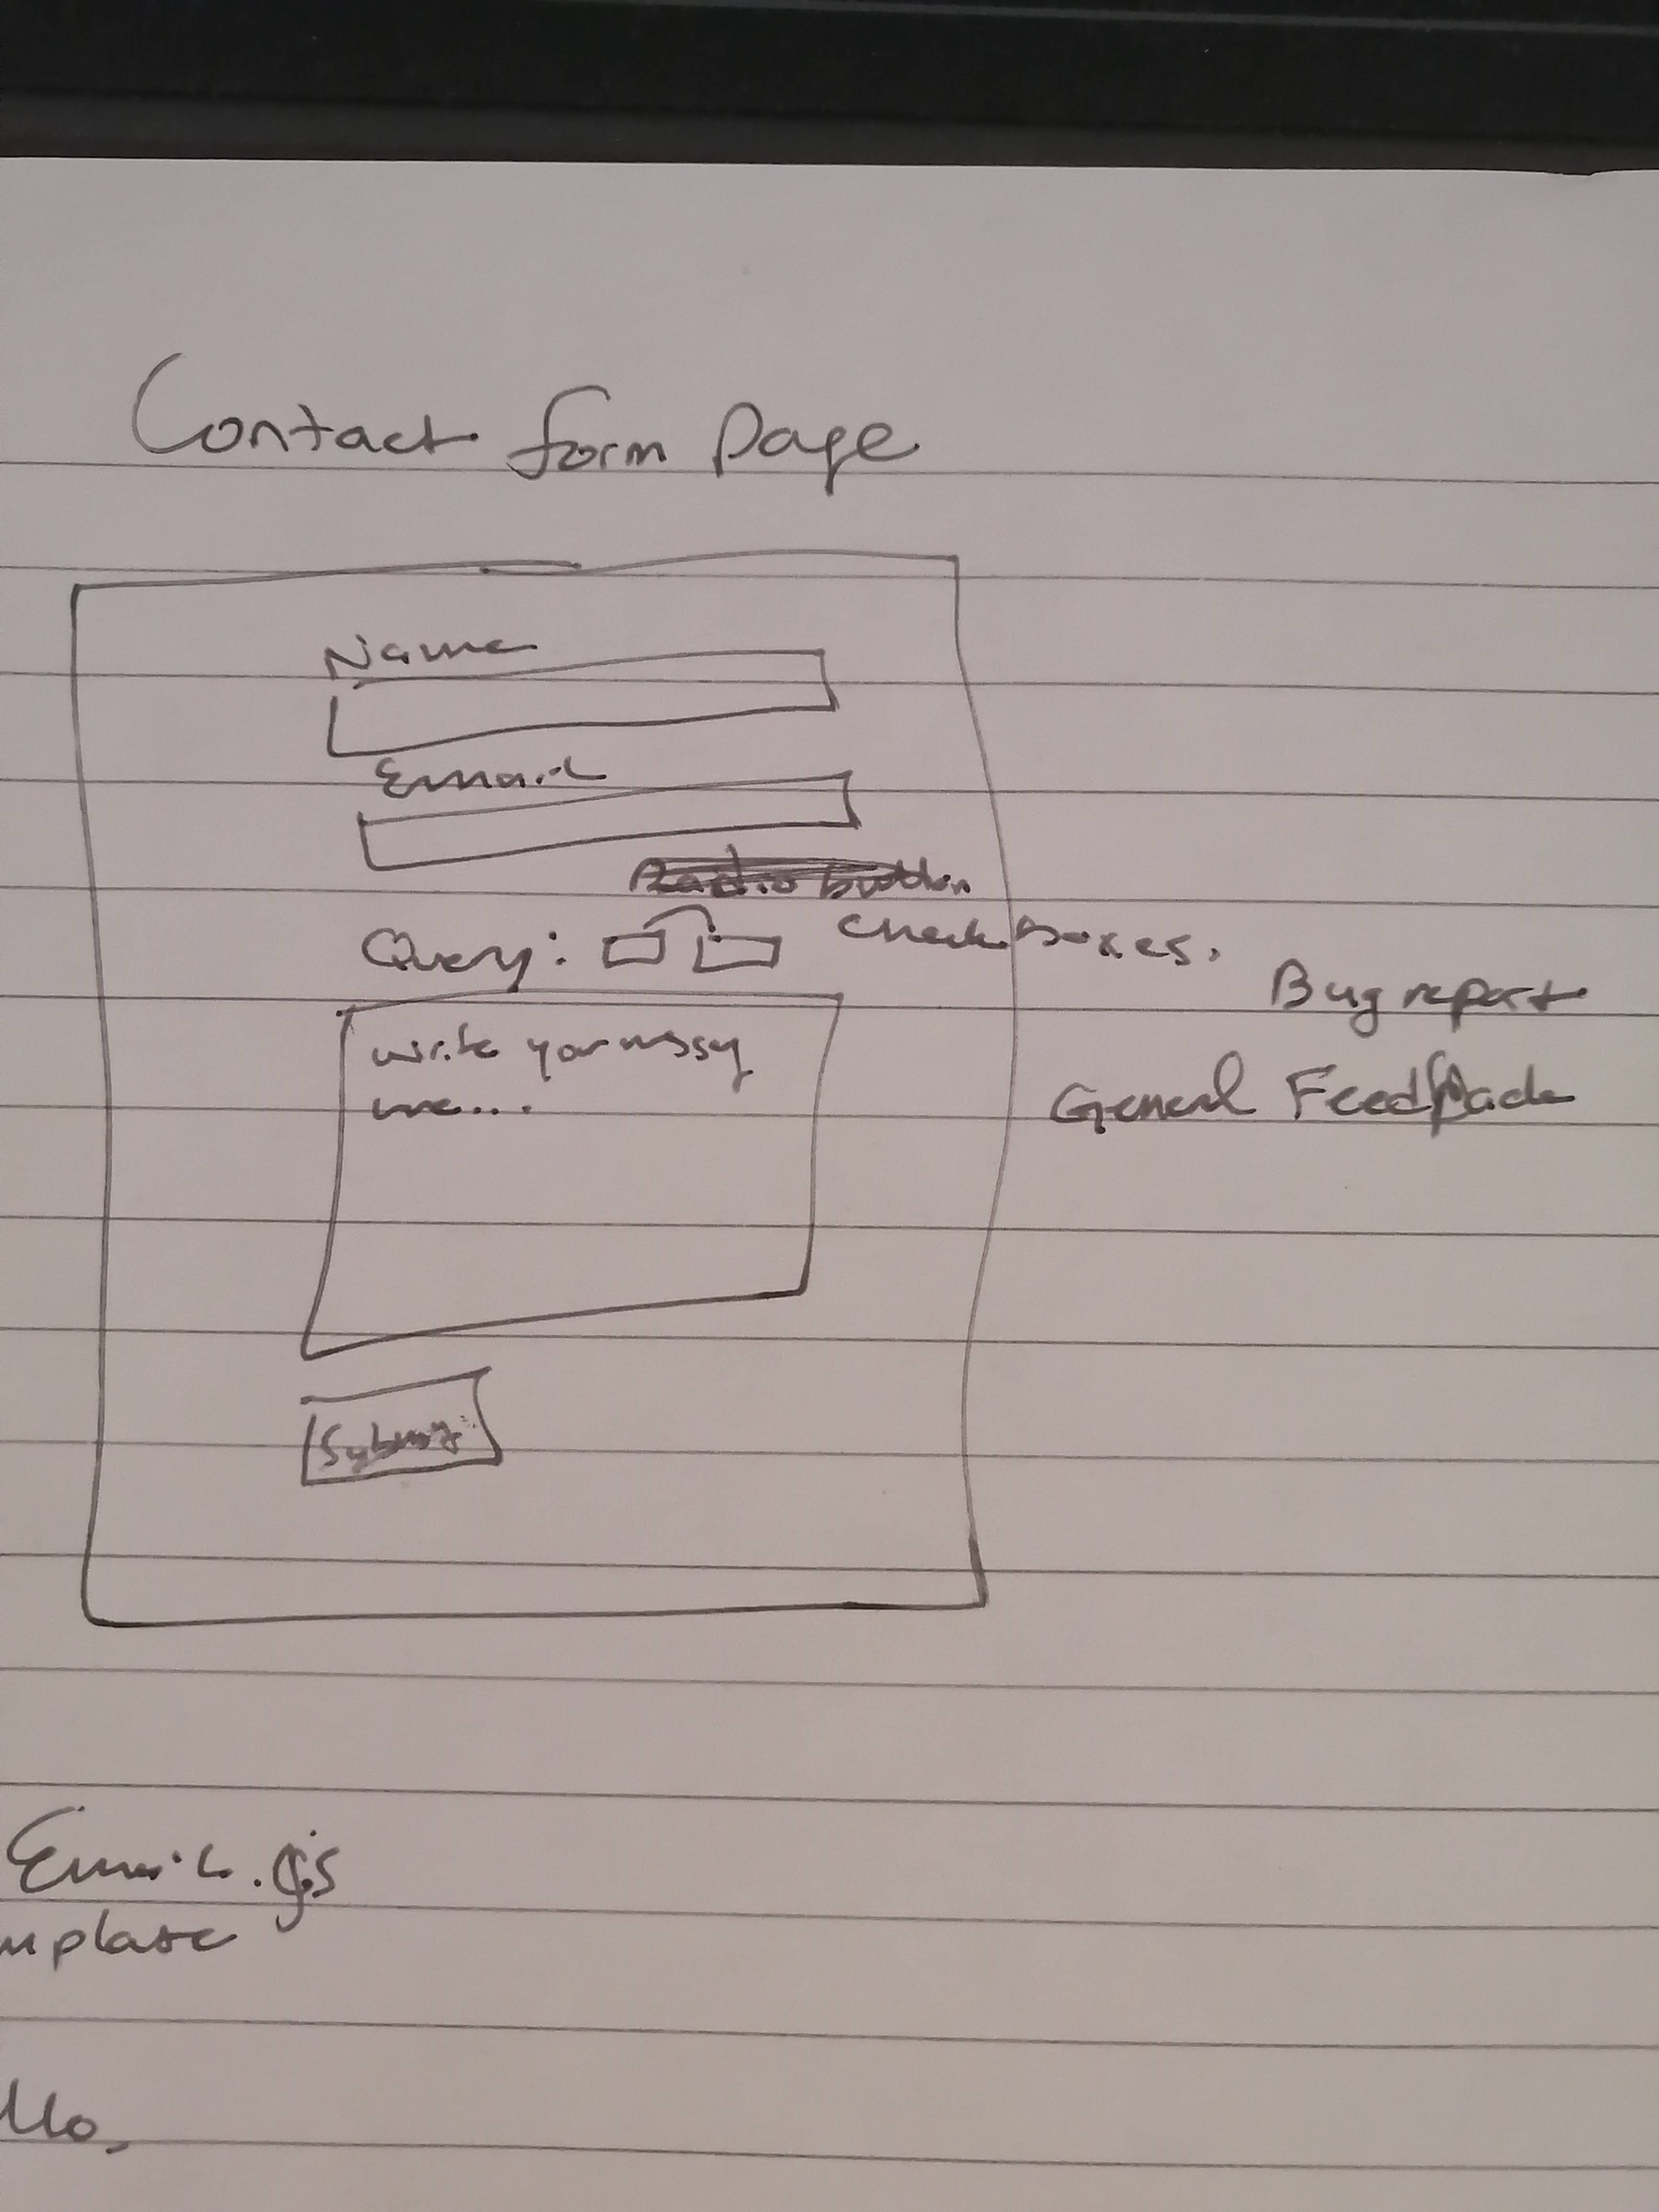 Contact form page
Name
Email
Radio button
Check Boxes.
Query:
Bug report
General Feedback
write your
...
Submit
Email.js
mplate
llo,